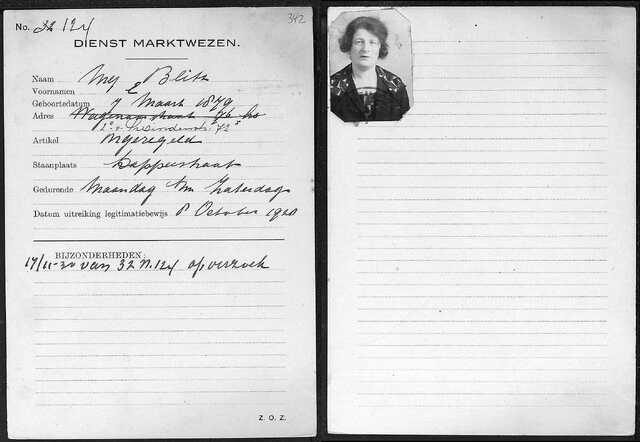 342
No. 32 124
DIENST MARKTWEZEN.
Naam Mej Blitz
Voornamen E
Geboortedatum 7 Maart 1879
Adres Wagenaarstraat 76 hs
72
Artikel ongeregeld
Staanplaats Dapperstraat
Gedurende Maandag t/m Zaterdag
Datum uitreiking legitimatiebewijs October 1920
BIJZONDERHEDEN:
17/11-30 van 32 N. 124 op verzoek
Z. O. Z.